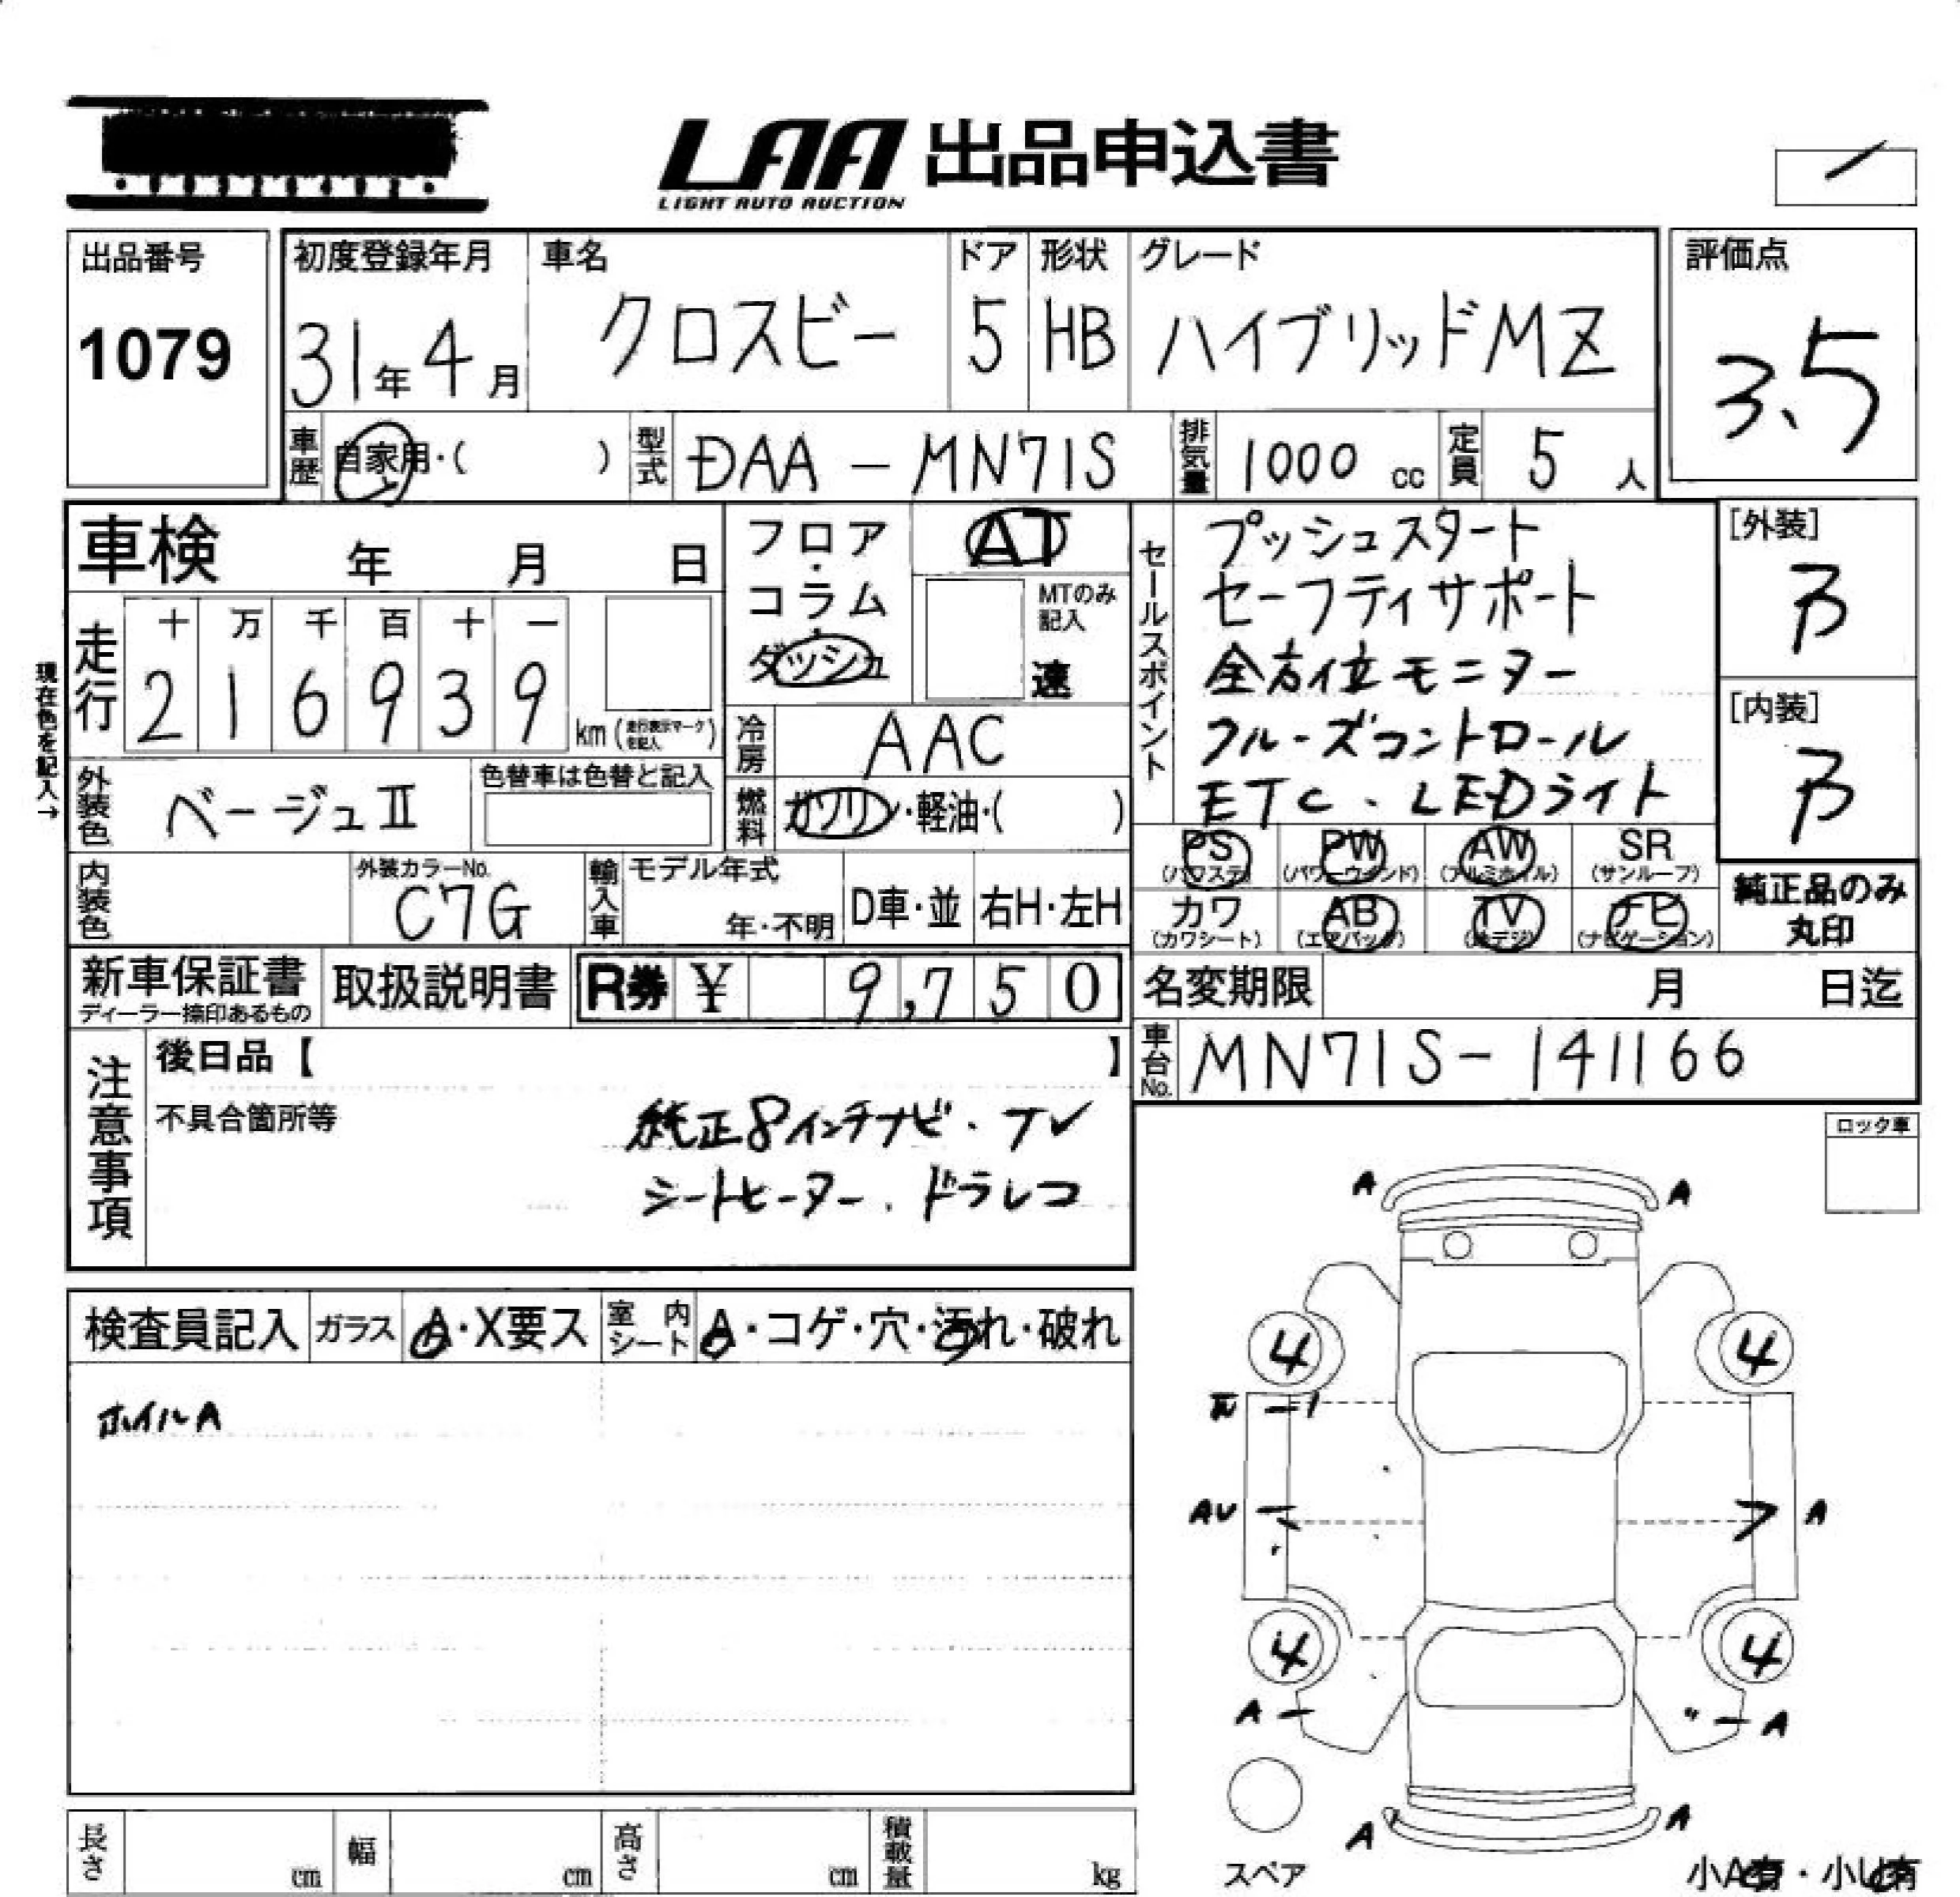 LAA 出品申込書
LIGHT AUTO AUCTION
出品番号
1079
初度登録年月
31年4月
車名
クロスビー
ドア
5
形状
HB
グレード
ハイブリッドMZ
評価点
3.5
車歴
自家用・( )
型式
DAA-MN71S
排気量
1000 cc
定員
5 人
車検 年 月 日
フロア・コラム・ダッシュ
AT
MTのみ記入
速
セールスポイント
プッシュスタート
セーフティサポート
全方位モニター
クルーズコントロール
ETC、LEDライト
[外装]
B
[内装]
B
現在色を記入→
走行
十 万 千 百 十 一
2 1 6 9 3 9
km (走行表示マークを記入)
冷房
AAC
外装色
ベージュII
色替車は色替と記入
燃料
ガソリン・軽油・( )
PS PW AW SR
(パワステ) (パワーウインド) (アルミホイル) (サンルーフ)
カワ AB TV ナビ
(カワシート) (エアバック) (地デジ) (ナビゲーション)
純正品のみ
丸印
内装色
外装カラーNo.
C7G
輸入車
モデル年式
年・不明
D車・並
右H・左H
新車保証書
ディーラー捺印あるもの
取扱説明書
R券 ¥ 9,750
名変期限 月 日迄
車台No.
MN71S-141166
注意事項
後日品【 】
不具合箇所等
純正8インチナビ・TV
シートヒーター、ドラレコ
ロック車
検査員記入
ガラス
A・X要ス
室内シート
A・コゲ・穴・汚れ・破れ
ホイルA
A A
4 4
AU A
4 4
A A
A A
スペア
小A有・小U有
長さ cm
幅 cm
高さ cm
積載量 kg